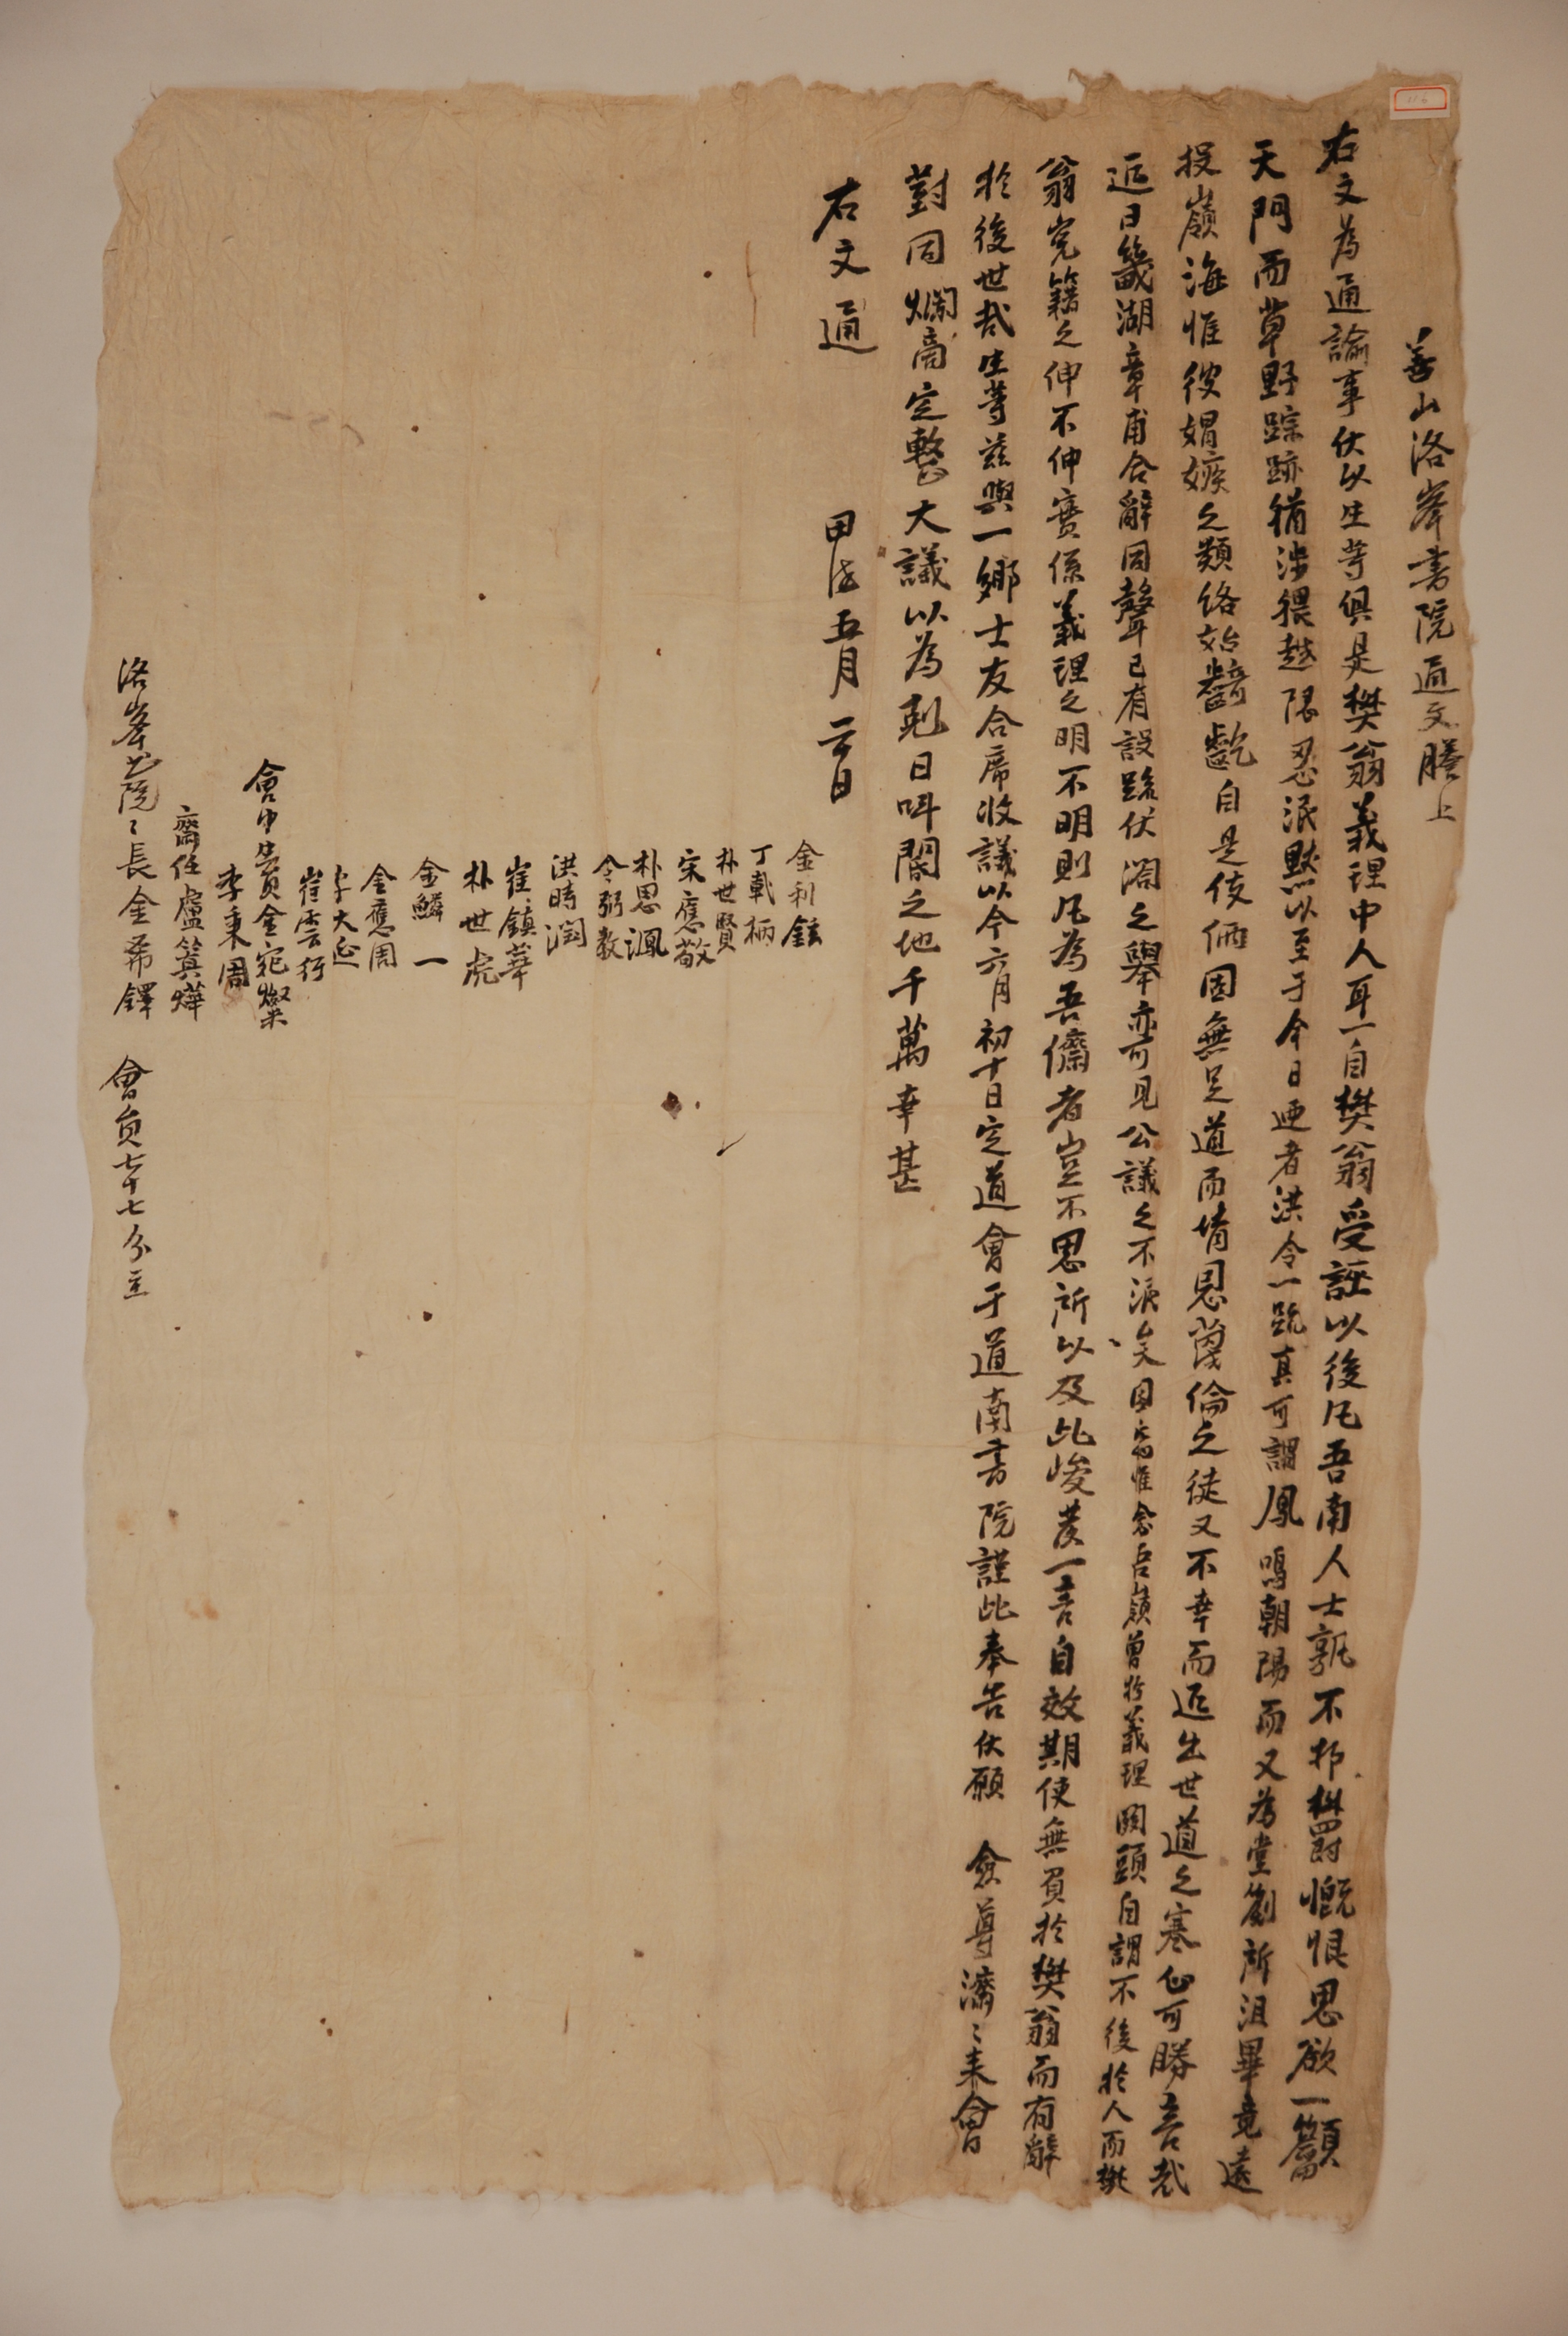 善山洛峯書院通文謄上
右文為通諭事伏以生等俱是樊翁義理中人耳一自樊翁受誣以後凡吾南人士孰不抑欝慨恨思欲一籲
天門而草野踪跡猶涉猥越隱忍泯默以至于今日迺者洪令一疏真可謂鳳鳴朝陽而又為堂劄所沮畢竟遠
投嶺海惟彼媢嫉之類終始齮齕自是伎倆固無足道而背恩蔑倫之徒又不幸而近出世道之寒心可勝言哉
近日畿湖章甫合辭同聲已有設疏伏閤之擧亦可見公議之不泯矣因竊惟念吾嶺曾於義理關頭自謂不後於人而樊
翁党籍之伸不伸實係義理之明不明則凡為吾儕者豈不思所以及此峻發一言自效期使無負於樊翁而有辭
於後世哉生等玆與一鄉士友合席收議以今六月初十日定道會于道南書院謹此奉告伏願　僉尊濟〻來會
對同爛商定整大議以為剋日叫閤之地千萬幸甚
右文通
甲戌五月二十日
金利鉉
丁載柄
朴世賢
宋應敬
朴思沨
令弼教
洪時潤
崔鎮華
朴世虎
金鱗一
金應周
李大延
崔雲行
會中貢員金宛燦
李秉周
齋任盧箕燁
洛峯書院〻長金希鐸　會員七十七分主